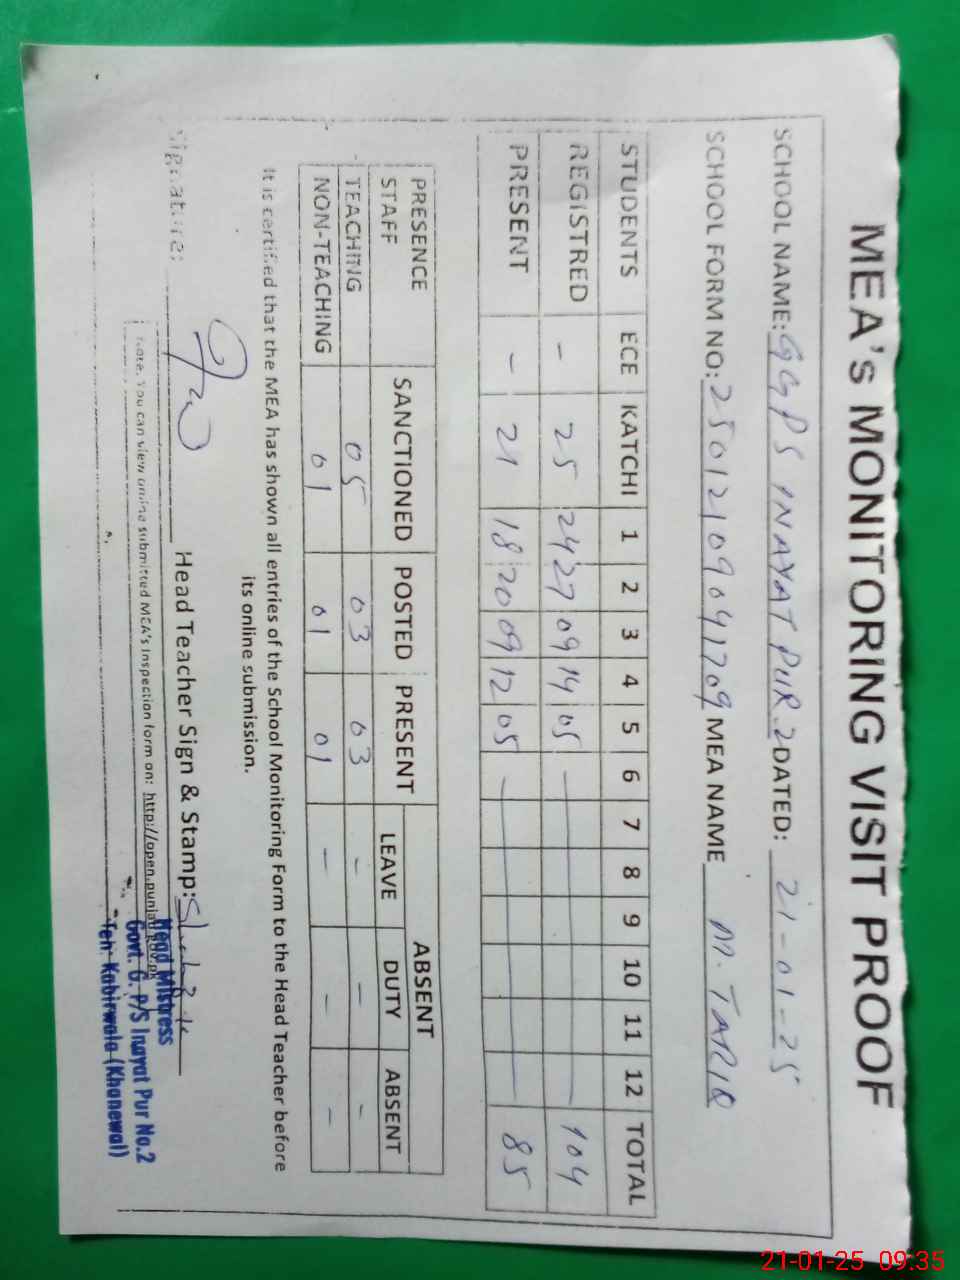 MEA's MONITORING VISIT PROOF
SCHOOL NAME: GGPS INAYAT PUR. 2 DATED: 21-01-25
SCHOOL FORM NO: 25012109041709 MEA NAME M. TARIQ
STUDENTS ECE KATCHI 1 2 3 4 5 6 7 8 9 10 11 12 TOTAL
REGISTRED - 25 24 27 09 14 05 — 104
PRESENT - 21 18 20 09 12 05 — 85
PRESENCE STAFF SANCTIONED POSTED PRESENT ABSENT
LEAVE DUTY ABSENT
TEACHING 05 03 03 - - -
NON-TEACHING 01 01 01 - - -
It is certified that the MEA has shown all entries of the School Monitoring Form to the Head Teacher before
its online submission.
Signature: Head Teacher Sign & Stamp:
Note. You can view online submitted MEA's Inspection form on: http://open.punjab.gov.pk
Head Mistress
Govt. G. P/S Inayat Pur No.2
Teh: Kabirwala (Khanewal)
21-01-25 09:35